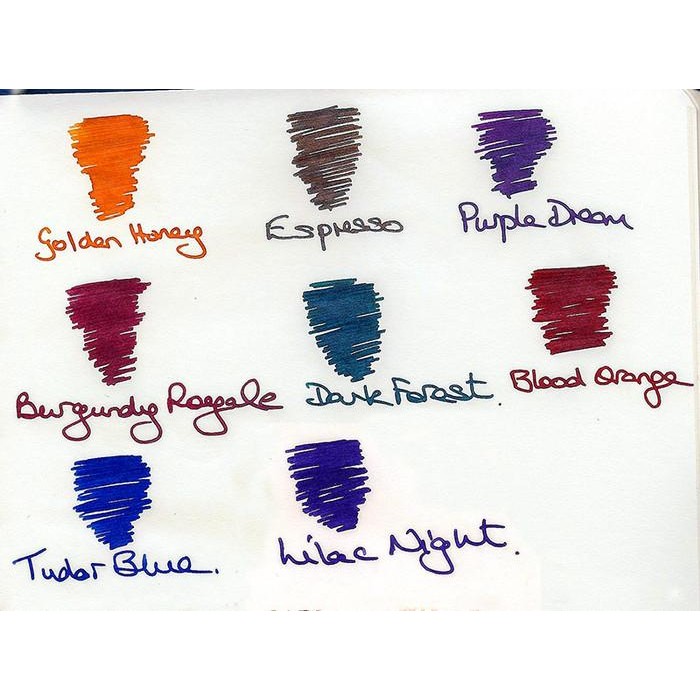 Golden Honey
Espresso
Purple Dream
Burgundy Royale
Dark Forest.
Blood Orange
Tudor Blue.
Lilac Night.